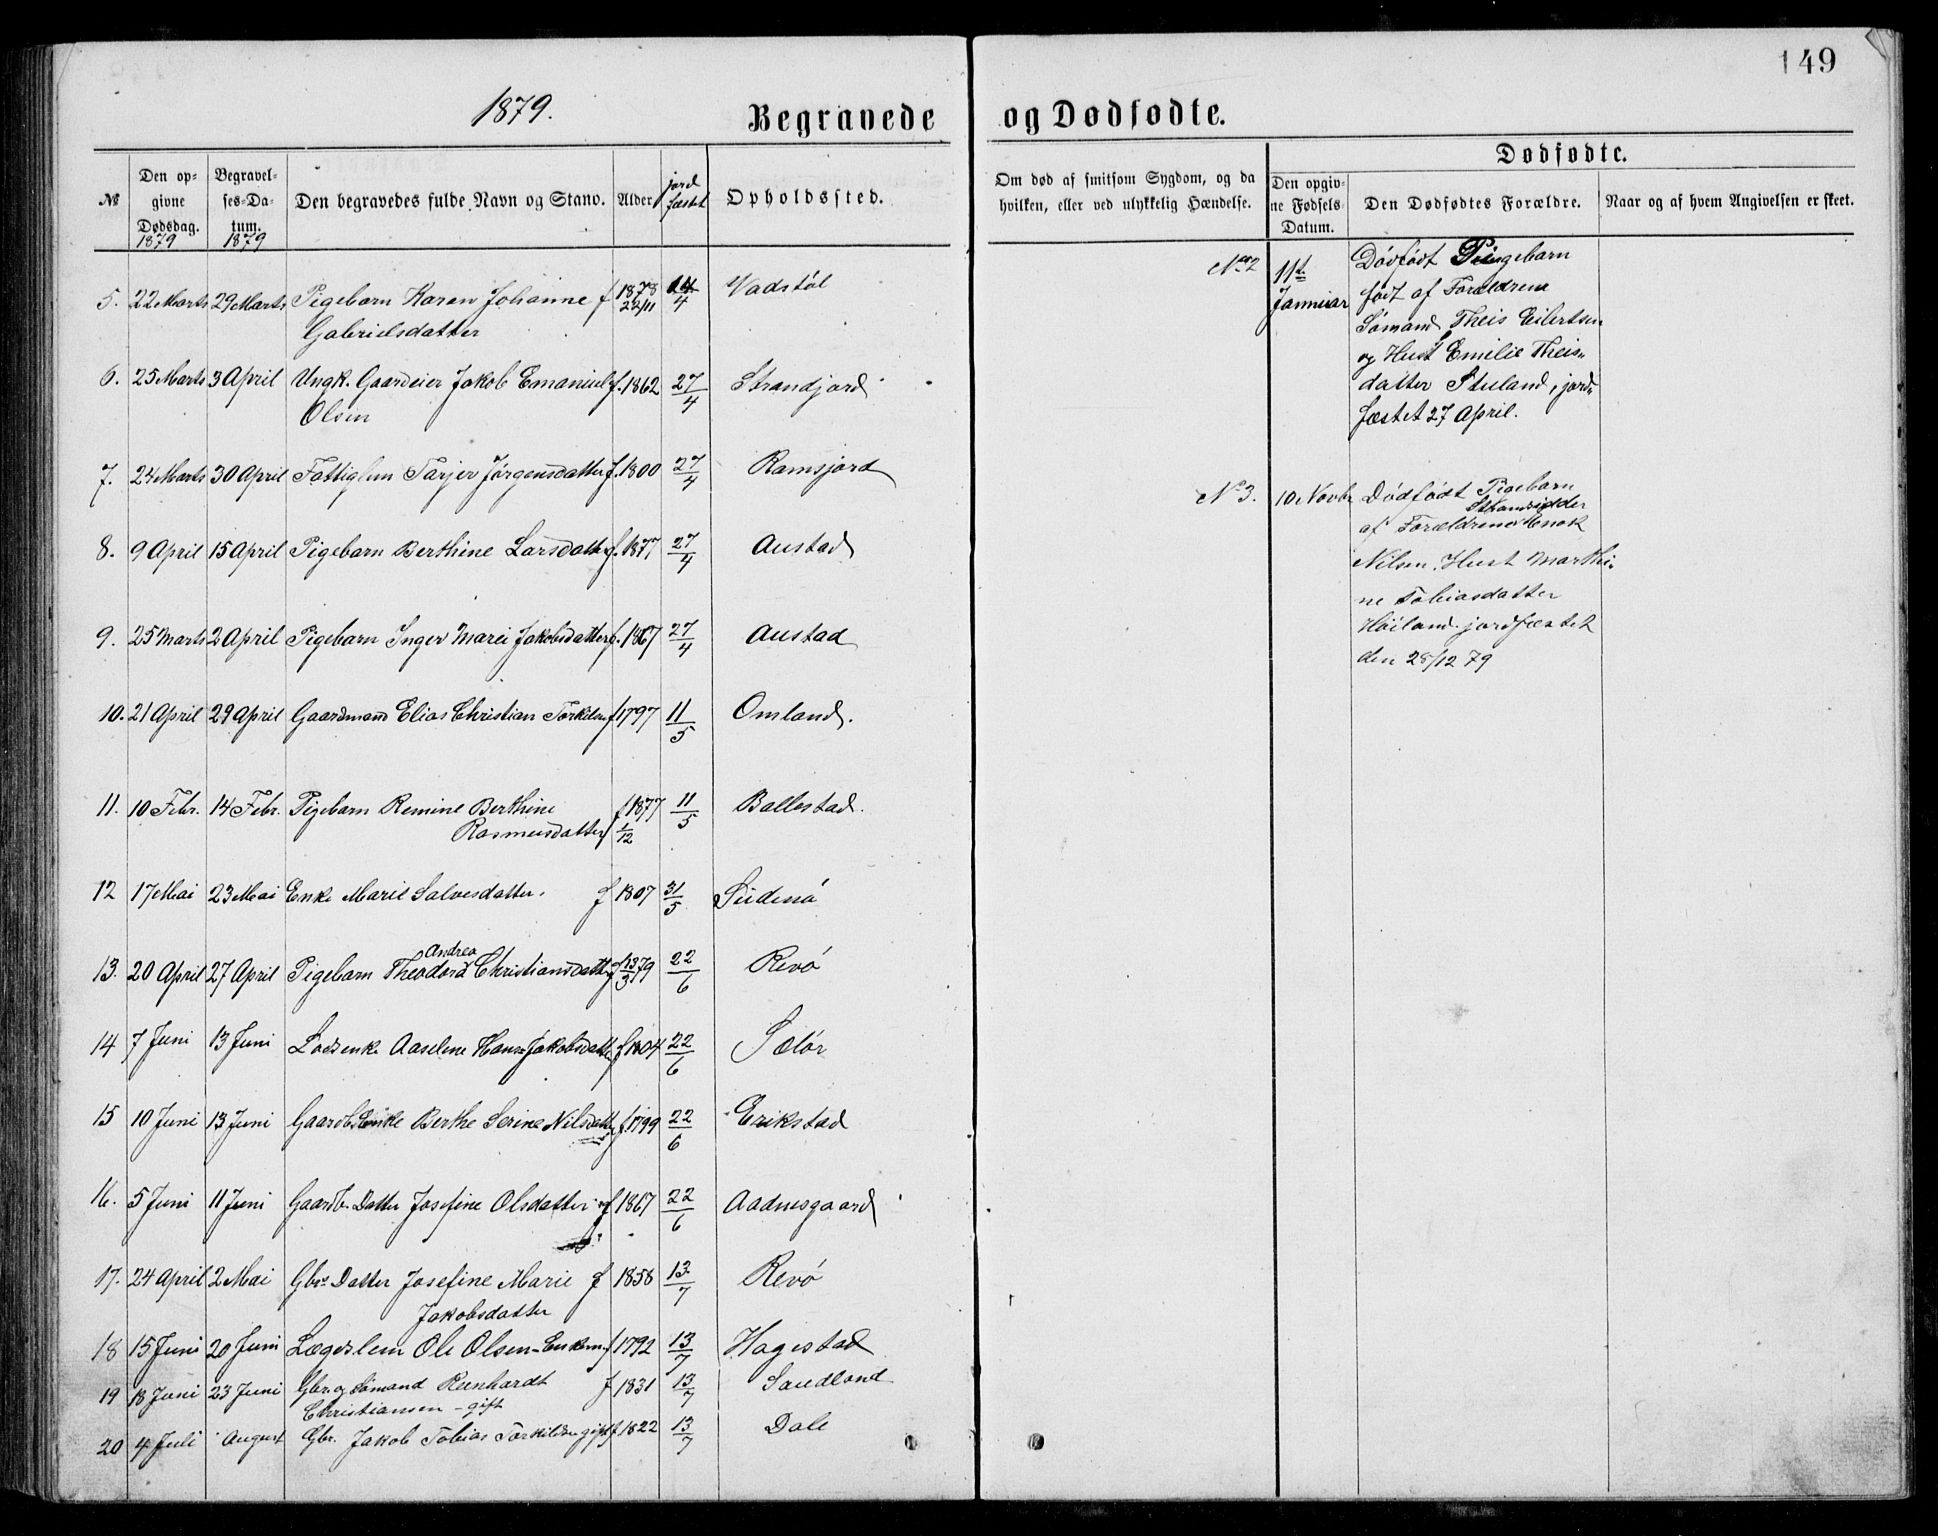 149
1879.
Begravede og Dødfødte.
Dødfødte.
№ Den opgivne Dødsdag. 1879 Begravelses-Datum. 1879 Den begravedes fulde Navn og Stand. Alder jordfæstet Opholdssted.
Om død af smitsom Sygdom, og da hvilken, eller ved ulykkelig Hændelse. Den opgivne Fødsels Datum. Den Dødfødtes Forældre. Naar og af hvem Angivelsen er skeet.
5. 22 Marts 29 Marts Pigebarn Karen Johanne f 1878 22/11 14/4 Vadstøl
Gabrielsdatter
6. 25 Marts 3 April Ungk. Gaardeier Jakob Emanuel f. 1862 27/4 Strandjord
Olsen
7. 24 Marts 30 April Fattiglem Tarjer Jørgensdatter f. 1800 27/4 Ramsjord
8. 9 April 15 April Pigebarn Berthine Larsdatter f. 1877 27/4 Austad
9. 25 Marts 2 April Pigebarn Inger Marei Jakobsdatter f. 1867 27/4 Austad
10. 21 April 29 April Gaardmand Elias Christian Torkilsen f 1797 11/5 Omland.
11. 10 Febr. 14 Febr. Pigebarn Remine Berthine f 1877 11/5 Ballestad.
Rasmusdatter 1/12
12 17 Mai 23 Mai Enke Marie Salvesdatter. f 1807 31/5 Sidenø
Andrea
13. 20 April 27 April Pigebarn Theodora Christiansdatter f 13/3 79 22/6 Revø
14 7 Juni 13 Juni Lodsenke Aaselene Hans Jakobsdatter f 1804 22/6 Sælør
15 10 Juni 13 Juni Gaardb. Enke Berthe Serine Nilsdatter f. 1799 22/6 Erikstad
16. 5 Juni 11 Juni Gaardb. Datter Josefine Olsdatter f 1867 22/6 Aadnesgaard
17. 24 April 2 Mai Gbrs Datter Josefine Marie f 1858 13/7 Revø
Jakobsdatter
18 15 Juni 20 Juni Lægdslem Ole Olsen - Enkem. f 1792 13/7 Hagestad
19 18 Juni 23 Juni Gbr. og Sømand Reinhardt f 1831 13/7 Sandland
Christiansen - gift
20 4 Juli August Gbr. Jakob Tobias Torkildsen gift f 1822 13/7 Dale
No 2 11te Januar Dødfødt Pigebarn
født af Forældrene
Sømand Theis Eilertsen
og Hust Emilie Theis-
datter Stuland, jord-
fæstet 27 April.
No 3. 10 Novbr Dødfødt Pigebarn
af Forældrene Strandsidder Enok
Nilsen, Hust Marthi-
ne Tobiasdatter
Høiland jordfæstet
den 28/12 79